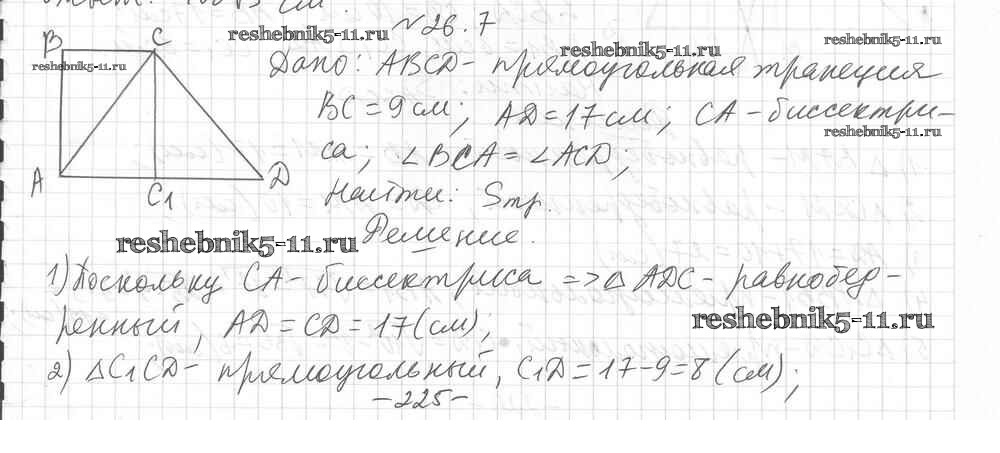 №26.7
reshebnik5-11.ru
reshebnik5-11.ru
reshebnik5-11.ru
B C
reshebnik5-11.ru
Дано: ABCD - прямоугольная трапеция
BC = 9 см; AD = 17 см; CA - биссектри-
reshebnik5-11.ru
са; ∠BCA = ∠ACD;
A C1 D
Найти: Sтр.
reshebnik5-11.ru
Решение.
1) Поскольку CA - биссектриса => △ ADC - равнобед-
ренный, AD = CD = 17 (см);
reshebnik5-11.ru
2) △C1CD - прямоугольный, C1D = 17-9=8 (см);
-225-